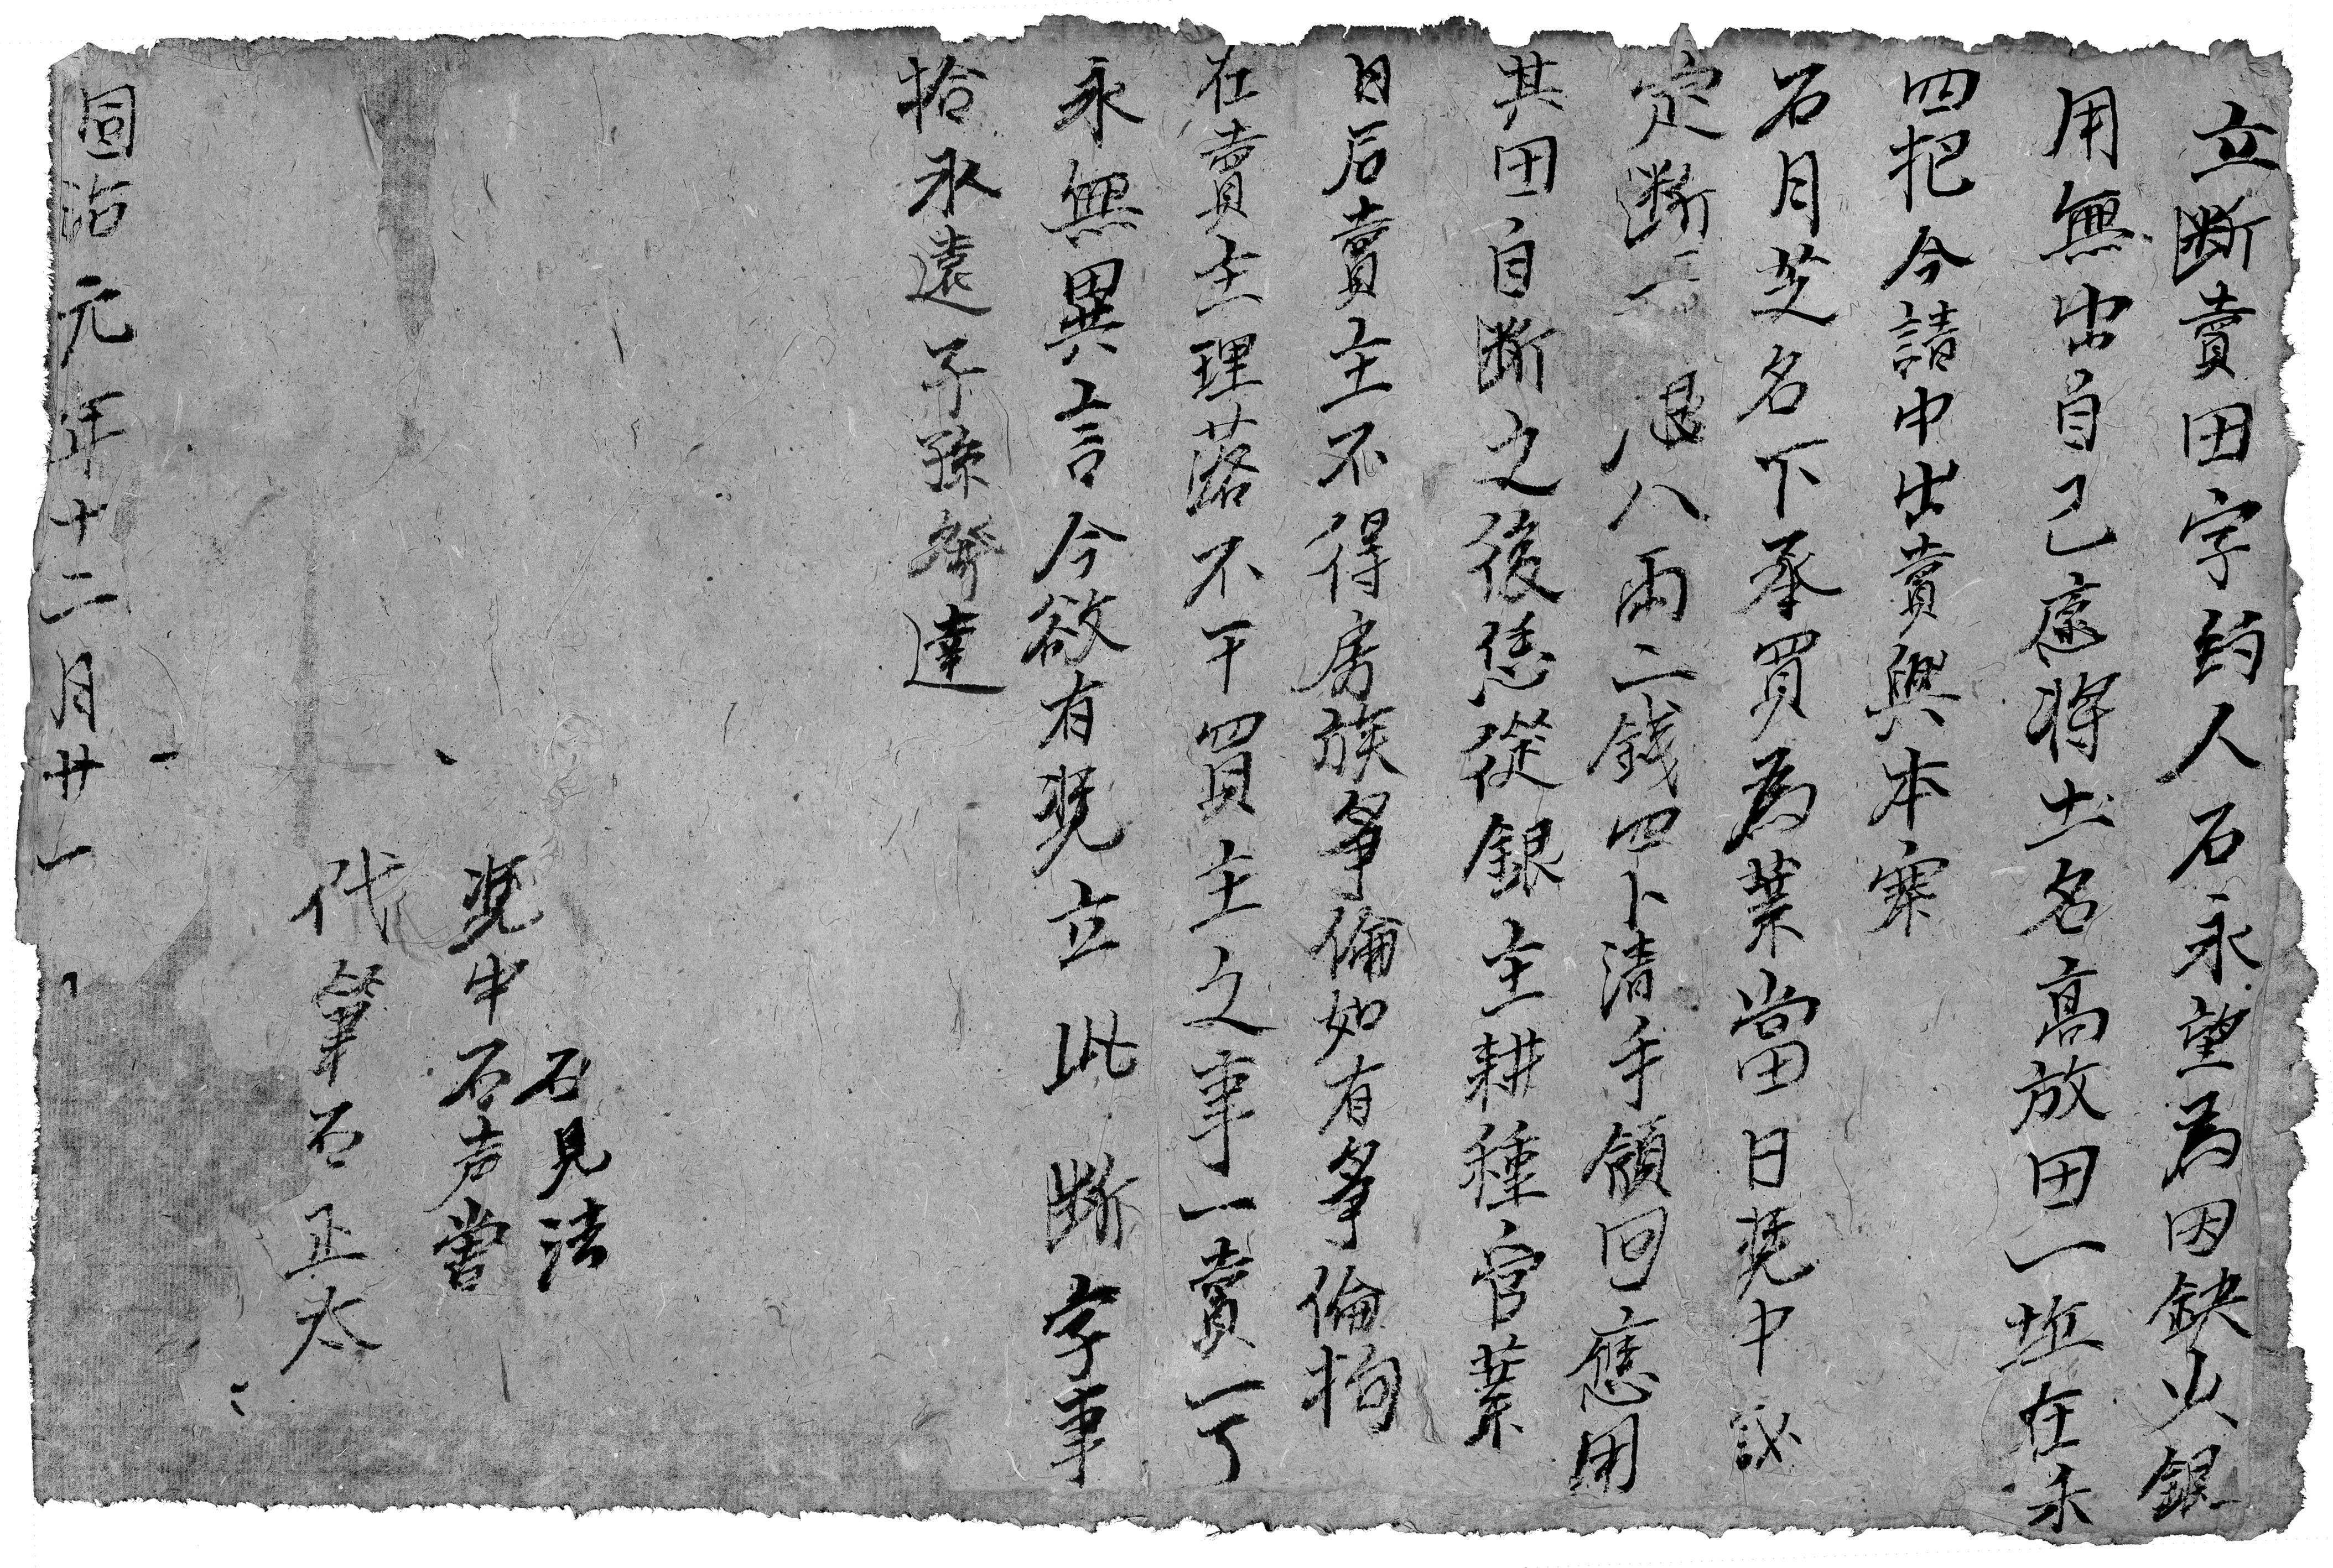 立断賣田字約人石永望為因缺少銀
用無出自己愿將土名高放田一坵在禾
四把今請中出賣與本寨
石月芝名下承買為業當日凭中議
定断價八兩二錢四卜清手領回應用
其田自断之後恁從銀主耕種官業
日后賣主不得房族爭倫如有爭倫拘
在賣主理落不干買主之事一賣一了
永無異言今欲有凭立此断字事
拾永遠子孫發達
石見法
凭中石声嘗
代筆石正太
同治元年十二月廿一